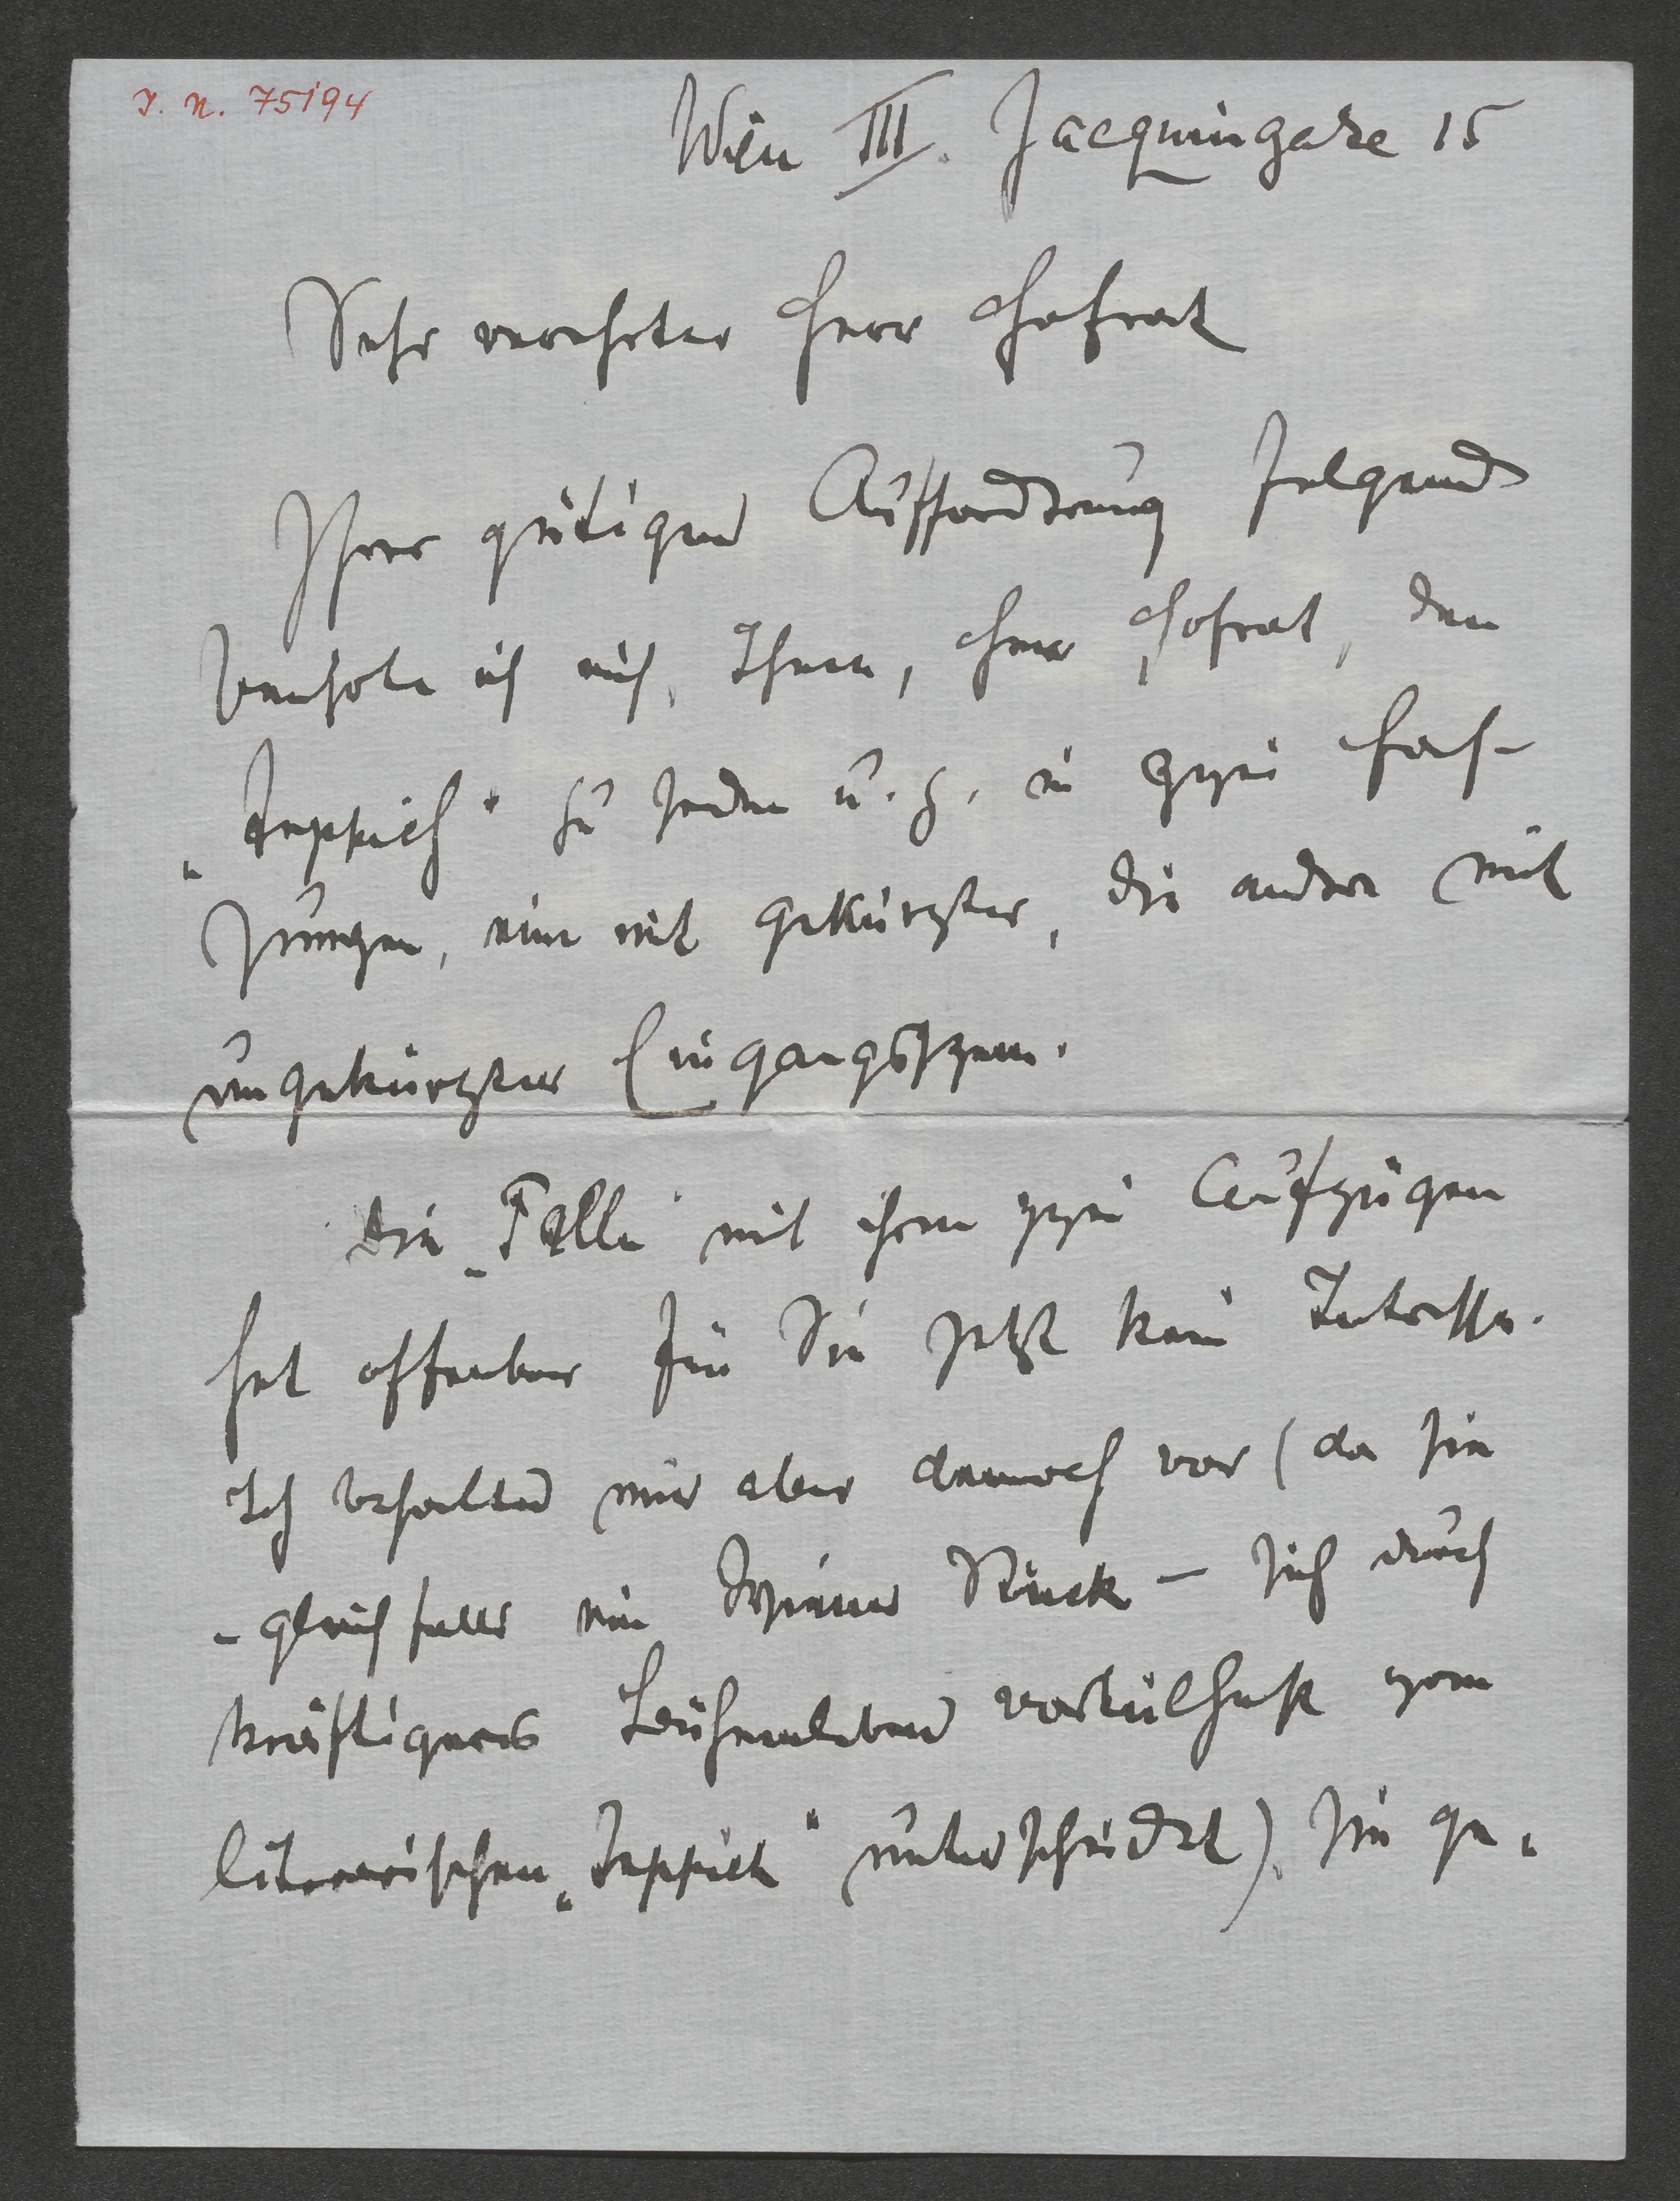 I. N. 75194
Wien III. Jacquingasse 15
Sehr verehrter Herr Hofrat
Ihrer gütigen Aufforderung folgend
beehre ich mich, Ihnen, Herr Hofrat, den
„Teppich“ zu senden u. z. in zwei Fas-
sungen, eine mit gekürzter, die andere mit
ungekürzter Eingangsszene.
Die „Falle“ mit ihren zwei Aufzügen
hat offenbar für Sie jetzt kein Interesse.
Ich behalte mir aber dennoch vor (da sie
- gleichfalls ein Wiener Stück - sich durch
kräftigeres Bühnenleben vorteilhaft vom
literarischen „Teppich“ unterscheidet), sie ge-